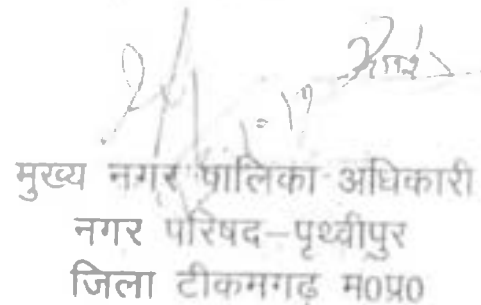 मुख्य नगर पालिका अधिकारी
नगर परिषद-पृथ्वीपुर
जिला टीकमगढ़ म0प्र0